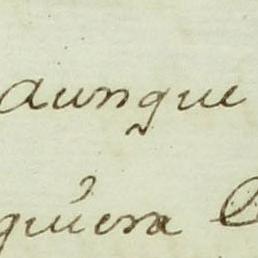 aunque
quiera